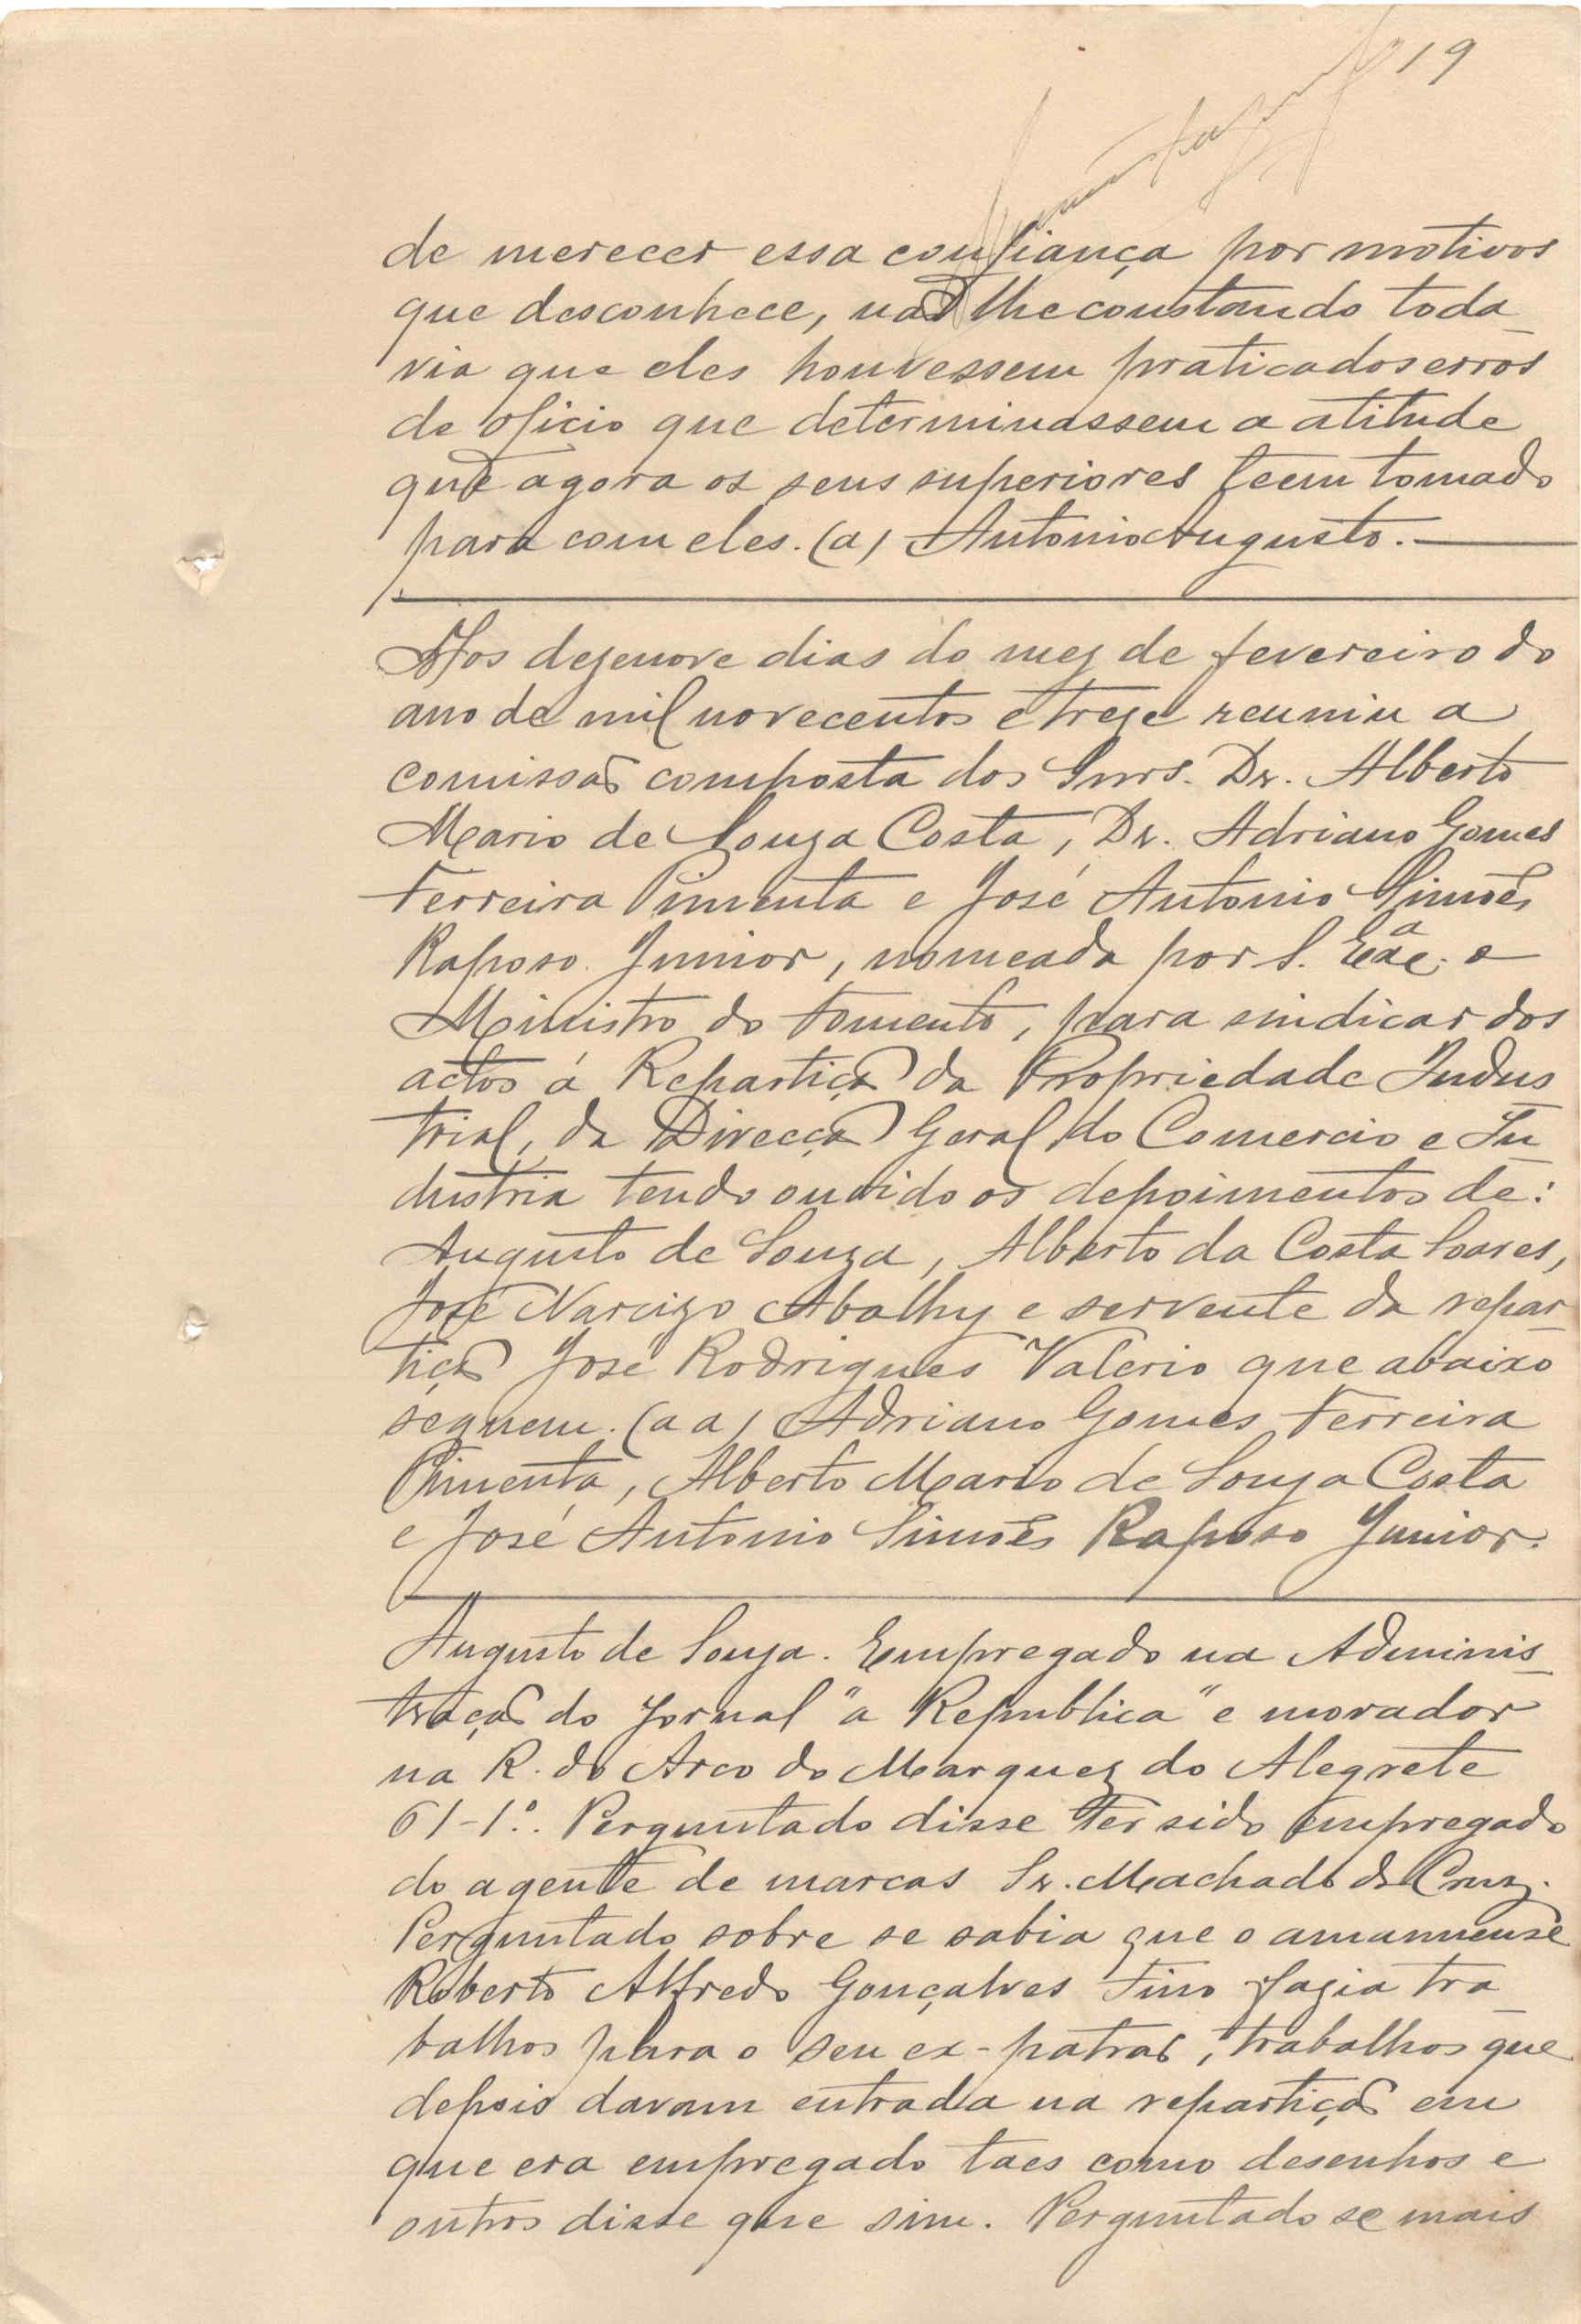 19
de merecer essa confiança por motivos
que desconhece, não lhe constando toda_
via que eles houvessem praticados erros
de oficio que determinassem a atitude
que agora os seus superiores teem tomado
para com eles. (a) Antonio Augusto.
Aos dezenove dias do mez de fevereiro do
ano de mil novecentos e treze reuniu a
comissão composta dos Snrs. Dr. Alberto
Mario de Souza Costa, Dr. Adriano Gomes
Ferreira Pimenta e José Antonio Simões
Raposo Junior, nomeada por S. Exª. o
Ministro do Fomento, para sindicar dos
actos á Repartição da Propriedade Indus
trial, da Direcção Geral do Comercio e In_
dustria tendo ouvido os depoimentos de:
Augusto de Souza, Alberto da Costa Soares,
José Narcizo Abalhy e servente da repar_
tição José Rodrigues Valerio que abaixo
seguem. (a a) Adriano Gomes Ferreira
Pimenta, Alberto Mario de Souza Costa
e José Antonio Simões Raposo Junior.
Augusto de Souza. Empregado na Adminis_
tração do jornal "a Republica" e morador
na R. do Arco do Marquez do Alegrete
61-1º. Perguntado disse ter sido empregado
do agente de marcas Sr. Machado da Cruz.
Perguntado sobre se sabia que o amanuense
Roberto Alfredo Gonçalves Tino fazia tra_
balhos para o seu ex-patrão, trabalhos que
depois davam entrada na repartição em
que era empregado taes como desenhos e
outros disse que sim. Perguntado se mais